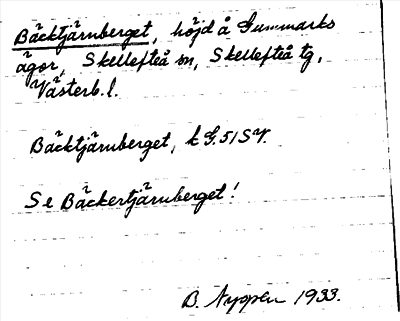 Bäcktjärnberget, höjd å Gummarks
ägor, Skellefteå sn, Skellefteå tg,
Västerb.l.
Bäcktjärnberget, k G.51SV.
Se Bäckertjärnberget!
B. Nyppen 1933.